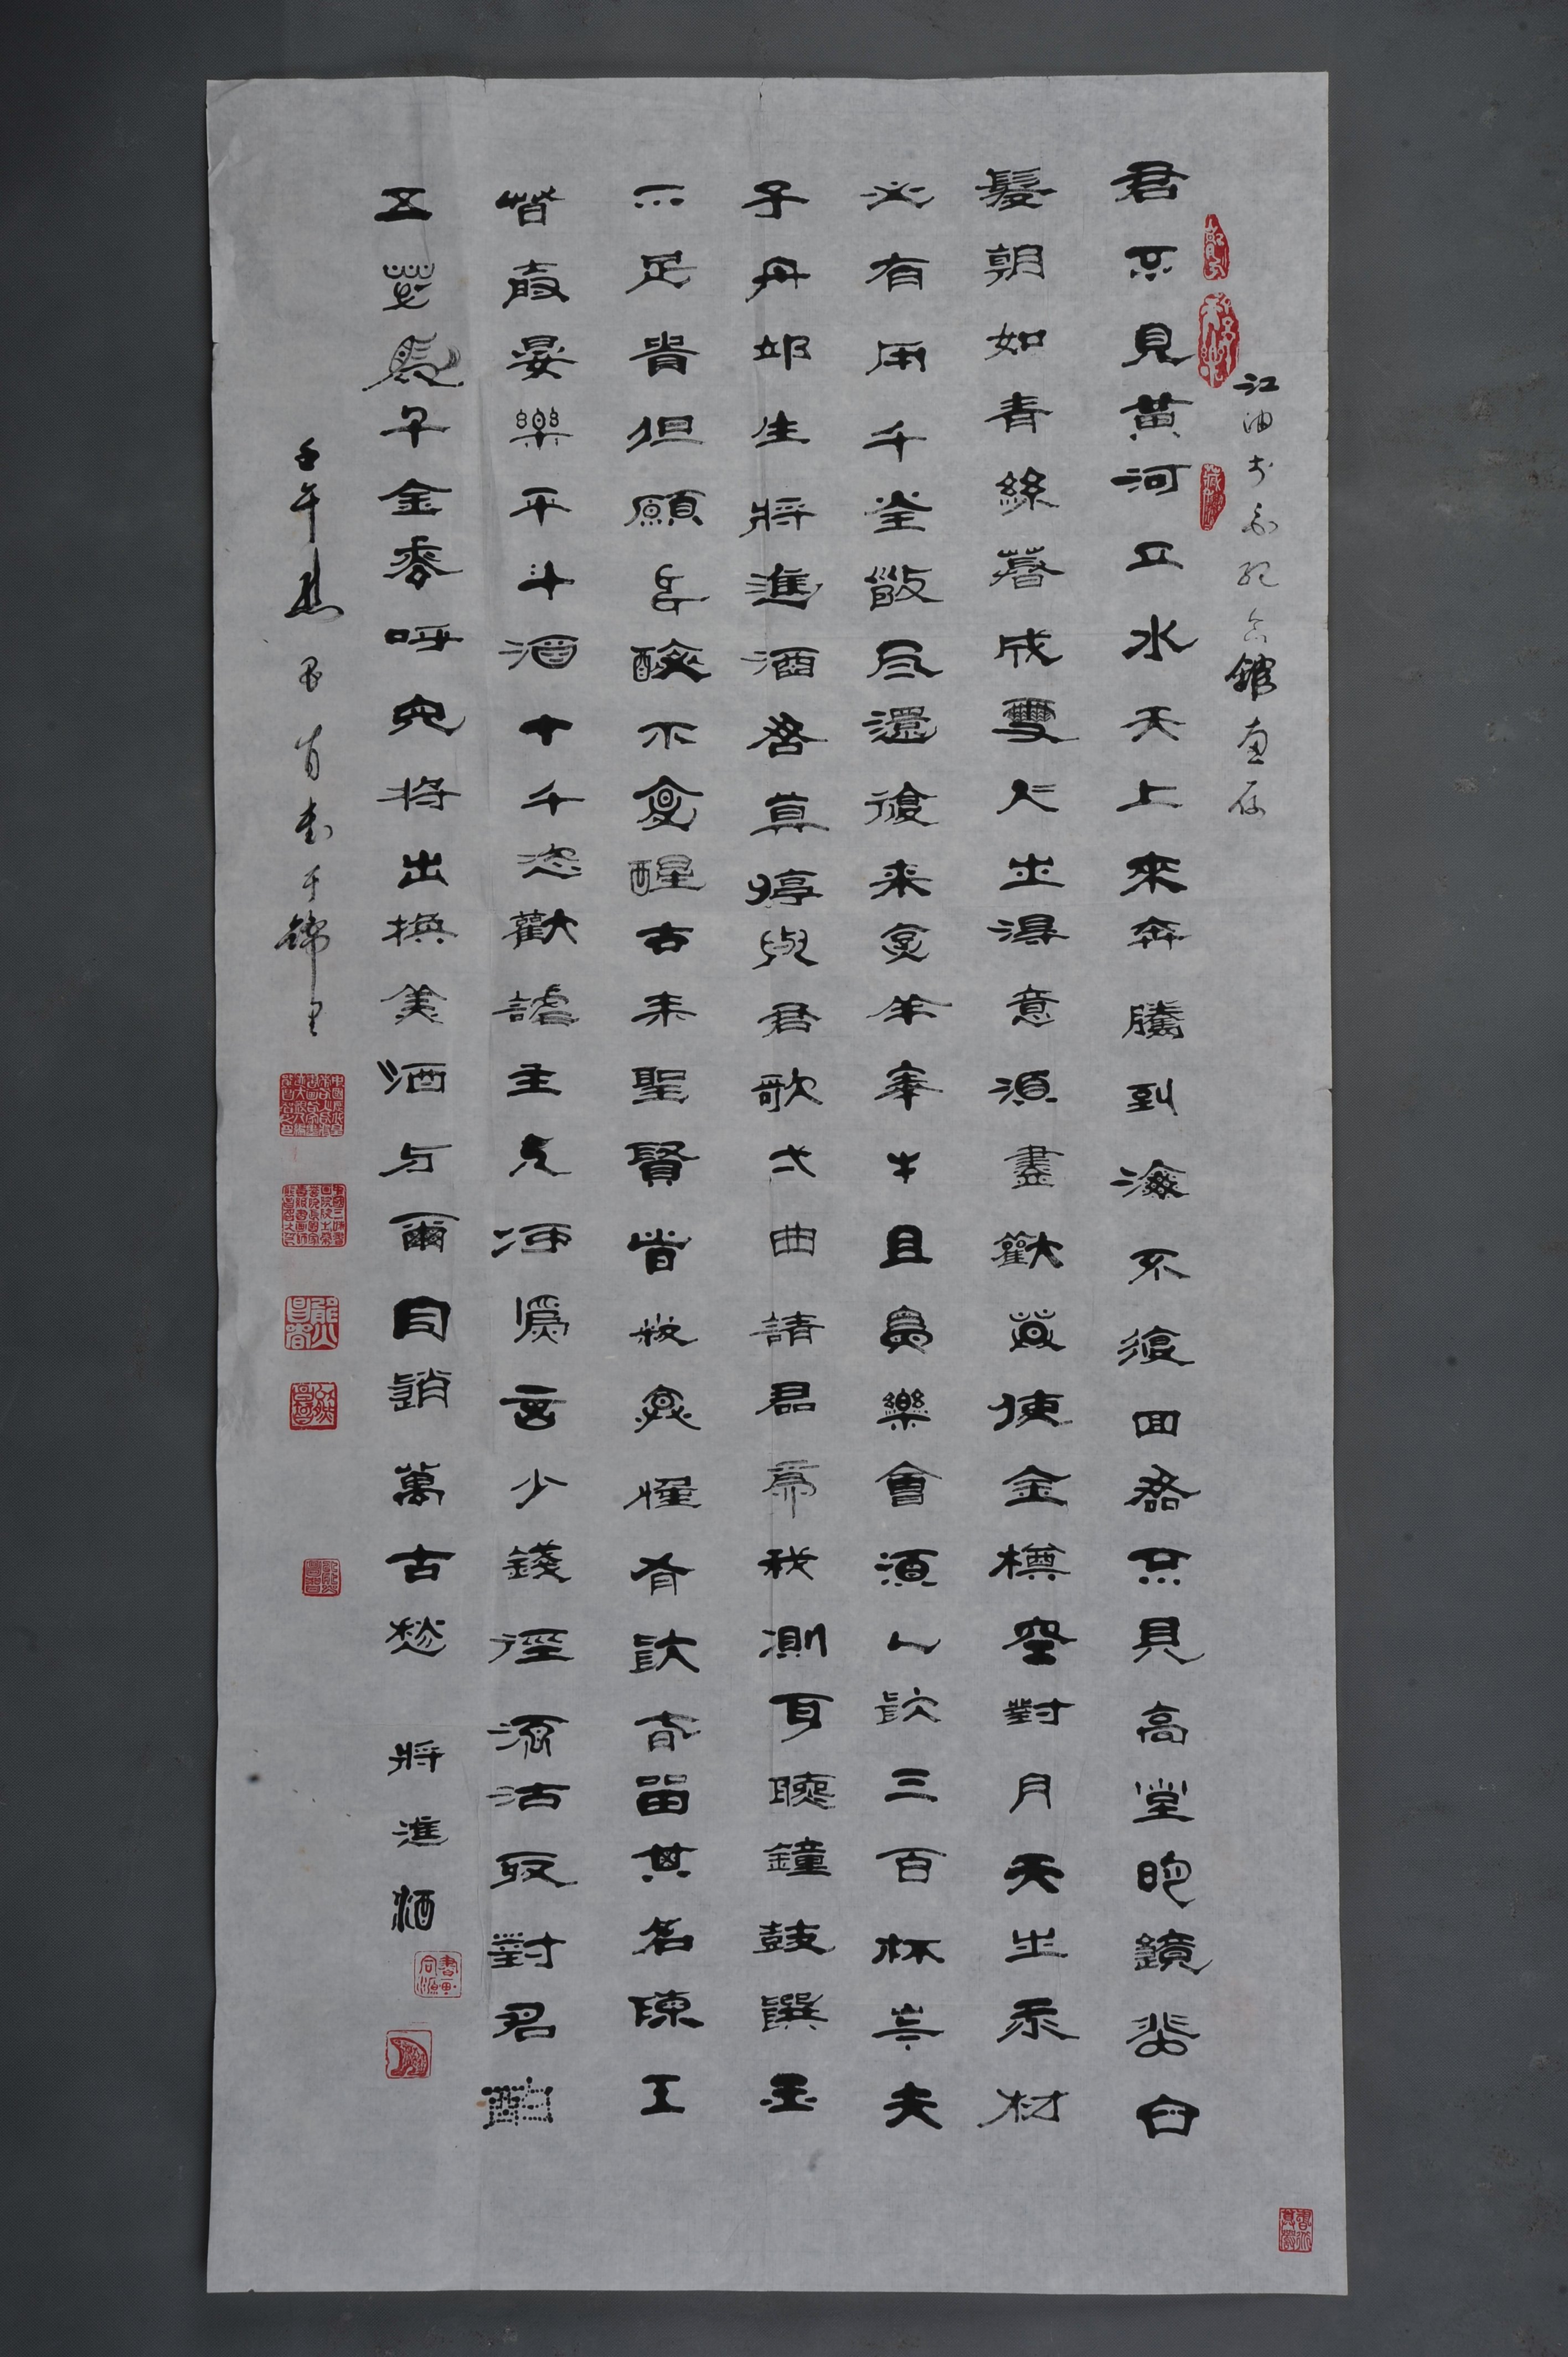 江油李白纪念館惠存
君不見黃河之水天上來奔騰到海不復回君不見高堂明鏡悲白
髮朝如青絲暮成雪人生得意須盡歡莫使金樽空對月天生我材
必有用千金散尽還復来烹羊宰牛且爲樂會須一飲三百杯岑夫
子丹邱生將進酒君莫停與君歌一曲請君爲我側耳聽鐘鼓饌玉
不足貴但願長醉不復醒古来聖賢皆寂寞惟有飲者留其名陳王
昔時宴樂平斗酒十千恣歡謔主人何爲言少錢徑須沽取對君酌
五花馬千金裘呼兒將出換美酒与爾同銷萬古愁 將進酒
壬午熊昌書于錦里